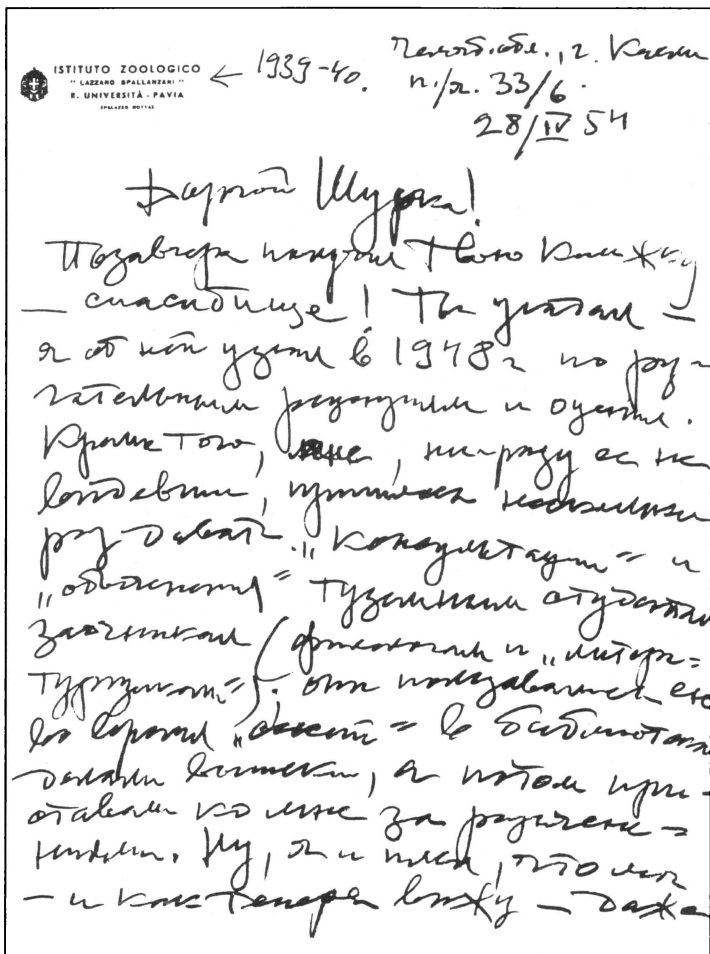 ISTITUTO ZOOLOGICO
"LAZZARO SPALLANZANI"
R. UNIVERSITÀ - PAVIA
(PALAZZO BOTTA)
← 1939-40.
обл., г.
п./я. 33/6.
28/IV 54
Дорогой Шурка!
Позавчера получил Твою книжку
— спасибище! Ты угадал —
я об ней узнал в 1948 г по ру-
гательным рецензиям и оценил.
Кроме того, мне, ни-разу ее не
видевши, пришлось несколько
раз давать „консультации" и
„объяснения" туземным студентам
заочникам (филологам и „литера-
турщикам"); они пользовались ею
во время в библиотеках
делали выписки, а потом при-
ставали ко мне за разъясне-
ниями. Ну, я и плел, что мог
— и как теперь вижу — даже